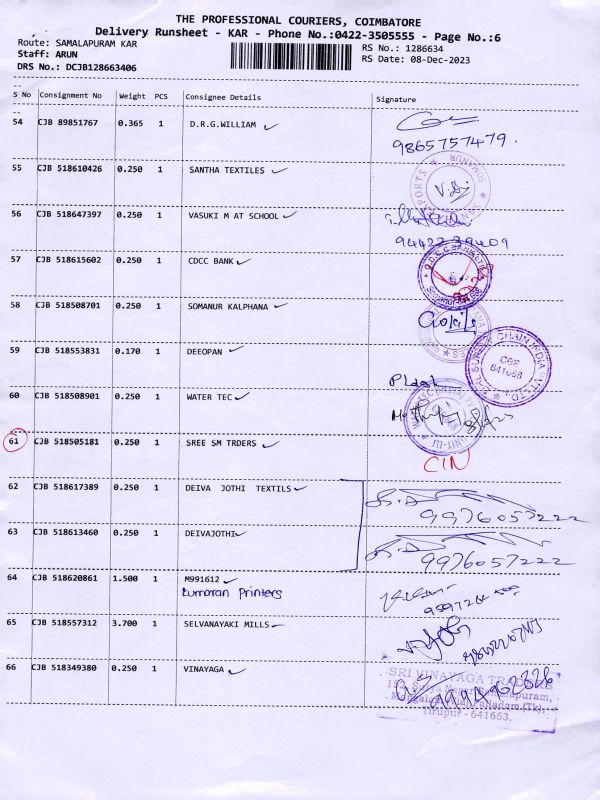 THE PROFESSIONAL COURIERS, COIMBATORE
Delivery Runsheet - KAR - Phone No.:0422-3505555 - Page No.:6
Route: SAMALAPURAM KAR
RS No.: 1286634
Staff: ARUN
RS Date: 08-Dec-2023
DRS No.: DCJB128663406
S No Consignment No Weight PCS Consignee Details Signature
54 CJB 89851767 0.365 1 D.R.G.WILLIAM
9865757479.
55 CJB 518610426 0.250 1 SANTHA TEXTILES
56 CJB 518647397 0.250 1 VASUKI M AT SCHOOL
9442239409
57 CJB 518615602 0.250 1 CDCC BANK
58 CJB 518508701 0.250 1 SOMANUR KALPHANA
59 CJB 518553831 0.170 1 DEEOPAN
CBE
641668
60 CJB 518508901 0.250 1 WATER TEC
61 CJB 518505181 0.250 1 SREE SM TRDERS
CIN
62 CJB 518617389 0.250 1 DEIVA JOTHI TEXTILS
9976057222
63 CJB 518613460 0.250 1 DEIVAJOTHI
9976057222
64 CJB 518620861 1.500 1 M991612
Kumaran Printers
65 CJB 518557312 3.700 1 SELVANAYAKI MILLS
66 CJB 518349380 0.250 1 VINAYAGA
SRI VINAYAGA TRADERS
Tirupur - 641663.